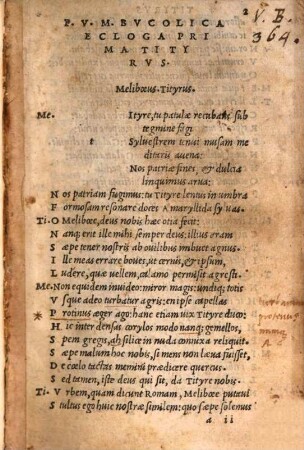 P. V. M. BVCOLICA
ECLOGA PRI
MA TITY
RVS.
2
V. E.
364.
Melibœus. Tityrus.
Me. Ityre, tu patulæ recubans sub
tegmine fagi
t Syluestrem tenui musam me
ditaris auena:
Nos patriæ fines, & dulcia
linquimus arua:
N os patriam fugimus: tu Tityre lentus in umbra
F ormosam resonare doces Amaryllida syluas.
Ti. O Melibœe, deus nobis hæc otia fecit:
N anq; erit ille mihi semper deus: illius aram
S æpe tener nostris ab ouilibus imbuet agnus.
I lle meas errare boues, ut cernis, & ipsum,
L udere, quæ uellem, calamo permisit agresti.
Me. Non equidem inuideo: miror magis: undiq; totis
V sque adeo turbatur agris: en ipse capellas
P rotinus æger ago: hanc etiam uix Tityre duco:
H ic inter densas corylos modo nanq; gemellos,
S pem gregis, ah silice in nuda connixa reliquit.
S æpe malum hoc nobis, si mens non læua fuisset,
D e cœlo tactas memini prædicere quercus.
S ed tamen, iste deus qui sit, da Tityre nobis.
Ti. V rbem, quam dicunt Romam, Melibœe putaui
S tultus ego huic nostræ similem: quo sæpe solemus
a ii